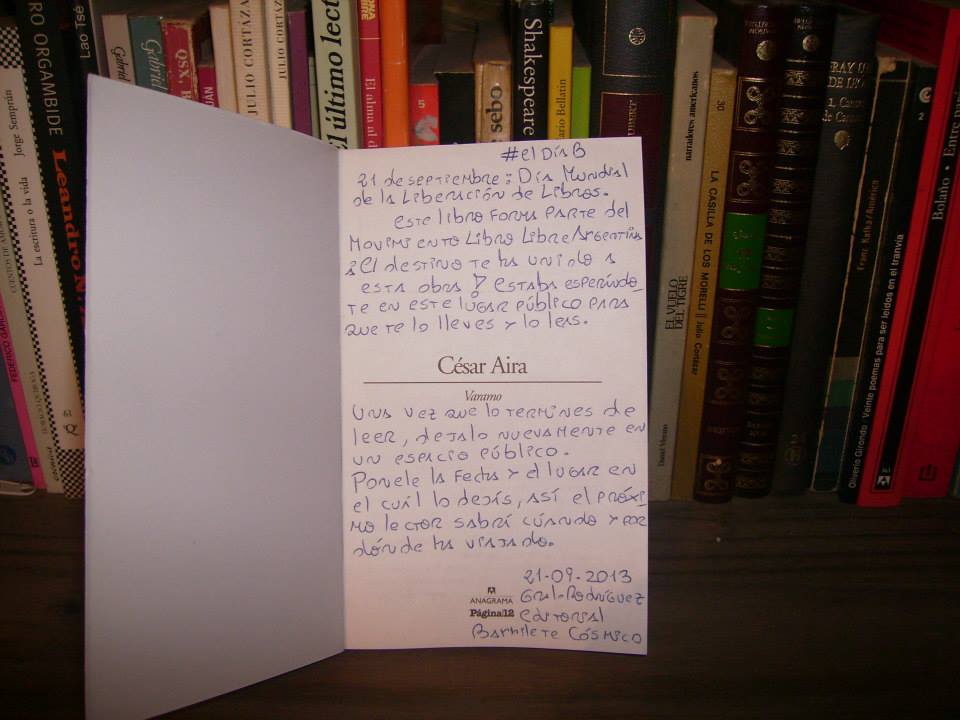 RO ORGAMBIDE
Lao Tsé
Gabriel
Gabriel
JULIO CORTAZAR
JULIO CORTAZ
El último lect
El alma al d
5
sebo
Shakespeare
ario Bellatin
narradores americanos
30
Jorge Semprún
La escritura o la vida
Leandro N.
CUENTOS DE AMOR
FEDERICO GARCÍA
EL VUELO
DEL TIGRE
Daniel Moyano
LA CASILLA DE LOS MORELLI || Julio Cortazar
Franz Kafka/América
Oliverio Girondo · Veinte poemas para ser leídos en el tranvía
2
Bolaño · Entre par
#el Día B
21 de septiembre: Día Mundial
de la Liberación de Libros.
Este libro forma parte del
Movimiento Libro Libre Argentina
¡El destino te ha unido a
esta obra! Estaba esperándo_
te en este lugar público para
que te lo lleves y lo leas.
César Aira
Varamo
Una vez que lo termines de
leer, dejalo nuevamente en
un espacio público.
Ponele la fecha y el lugar en
el cuál lo dejás, así el próxi_
mo lector sabrá cuándo y por
dónde ha viajado.
21-09-2013
ANAGRAMA
Página|12
Galo Rodríguez
Editorial
Barrilete Cósmico